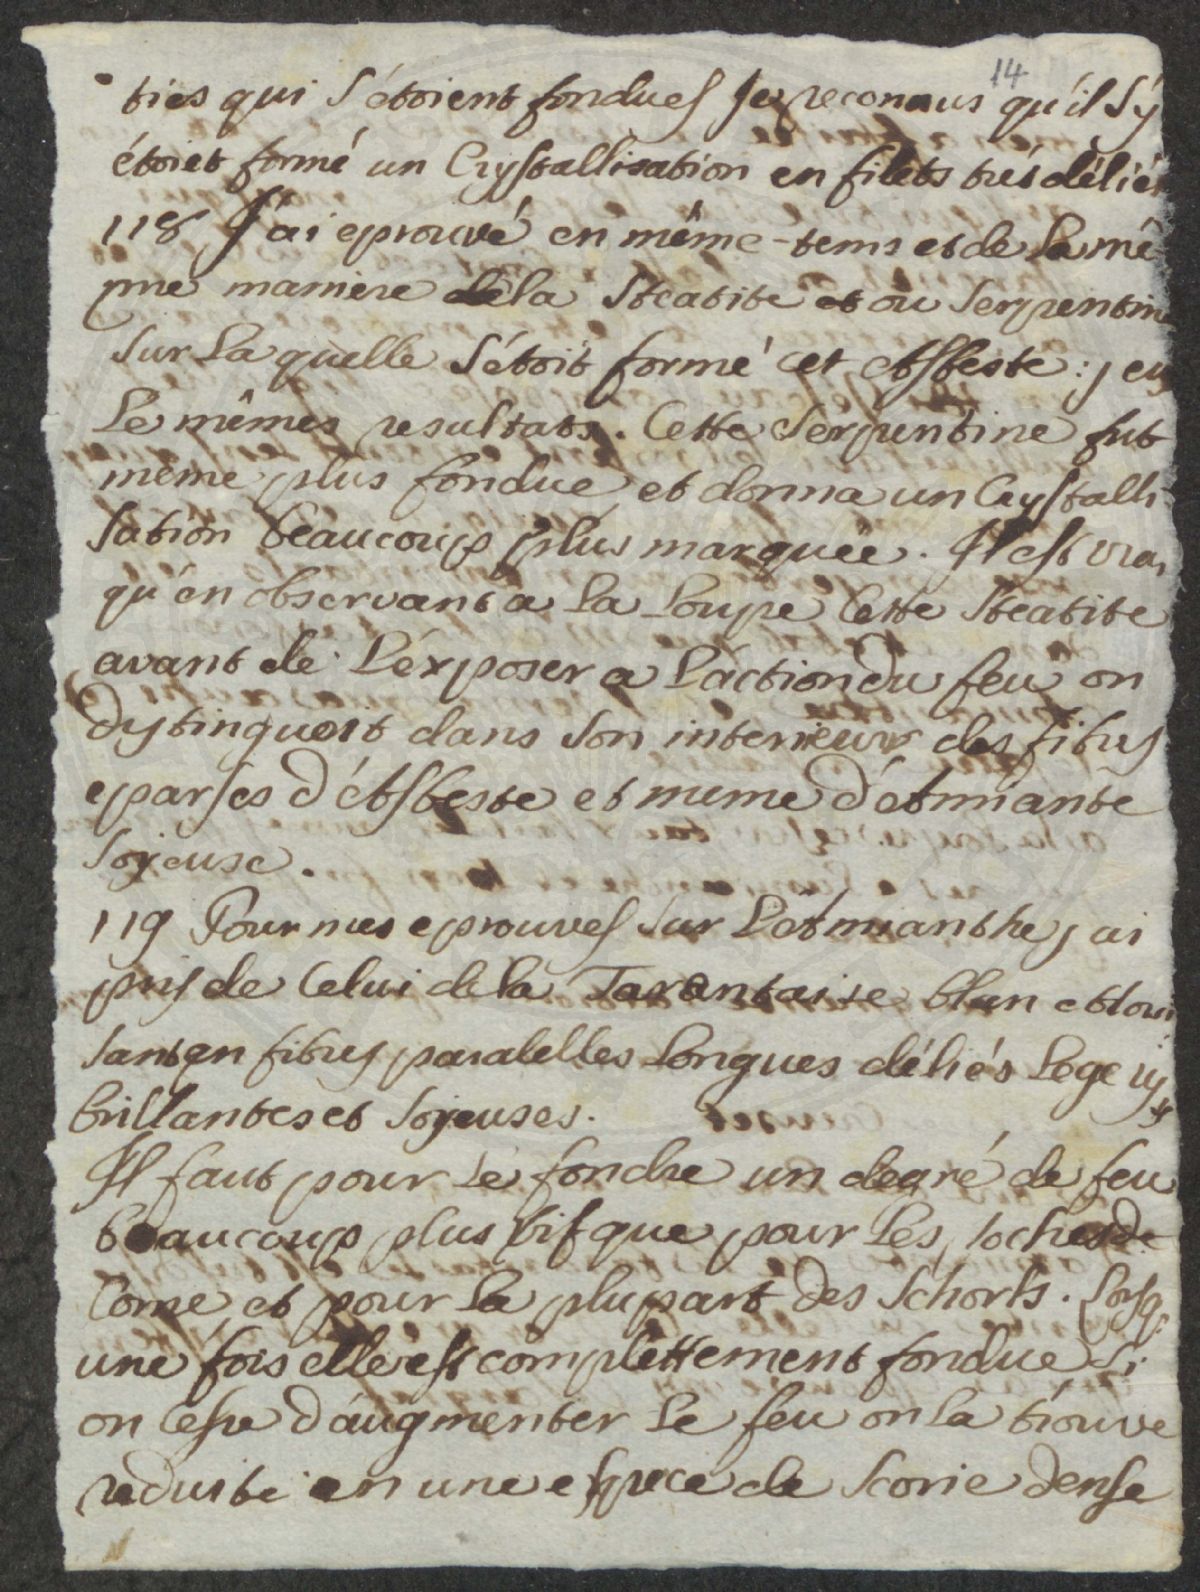 14
ties qui s'étoient fondues je reconnus qu'il s'y
étoiet formé un Crystallisation en filets trés déliés
118 J'ai eprouvé en même-tems et de la mê
me maniere de la Steatite et ou Serpentine
sur la quelle s'étoit formé cet Asbeste : j eus
le mêmes resultats. Cette Serpentine fut
meme plus fondue et donna un Crystalli-
sation beaucoup plus marquée. Il est vrai
qu'en observant a la loupe cette Steatite
avant de l'éxposer a l'action du feu on
dystinguoit dans son interieur des fibres
eparses d'Asbeste et meme d'Amiante
soyeuse.
119 Pour mes eprouves sur l'Amianthe j ai
pris de celui de la Tarantaise blan eblouis
sant en fibres paralelles longues déliés legerys
brillantes et soyeuses.
Il faut pour le fondre un degré de feu
beaucoup plus vif que pour les roches de
Corne et pour la plupart des Schorls. Lorsq.
une fois elle est complettement fondue si
on cesse d'augmenter le feu on la trouve
reduite en une espece de Scorie dense